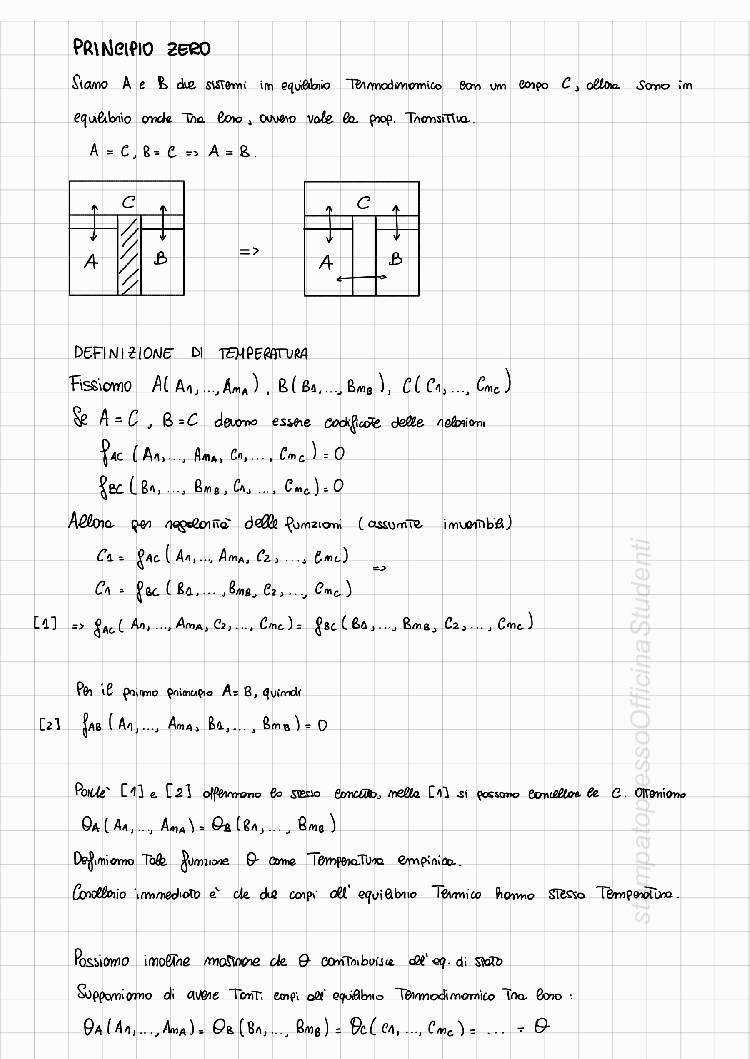 PRINCIPIO ZERO
Siano A e B due sistemi in equilibrio Termodinamico con un corpo C, allora sono in
equilibrio anche Tra loro, ovvero vale la prop. Transitiva.
A = C, B = C => A = B.
C C
A B => A B
DEFINIZIONE DI TEMPERATURA
Fissiamo A(A1, ..., AmA), B(B1, ..., BmB), C(C1, ..., CmC)
Se A = C, B = C devono essere codificate delle relazioni
fAC (A1, ..., AmA, C1, ..., CmC) = 0
fBC (B1, ..., BmB, C1, ..., CmC) = 0
Allora per regolarità delle funzioni (assunte invertibili)
C1 = gAC (A1, ..., AmA, C2, ..., CmC)
=>
C1 = gBC (B1, ..., BmB, C2, ..., CmC)
[1] => gAC (A1, ..., AmA, C2, ..., CmC) = gBC (B1, ..., BmB, C2, ..., CmC)
Per il primo principio A = B, quindi
[2] fAB (A1, ..., AmA, B1, ..., BmB) = 0
Poiché [1] e [2] affermano lo stesso concetto, nella [1] si possono cancellare le C. Otteniamo
θA (A1, ..., AmA) = θB (B1, ..., BmB)
Definiamo Tale funzione θ come Temperatura empirica.
Corollario immediato è che due corpi all'equilibrio Termico hanno stessa Temperatura.
Possiamo inoltre mostrare che θ contribuisce all'eq. di stato
Supponiamo di avere Tanti corpi all'equilibrio Termodinamico Tra loro:
θA (A1, ..., AmA) = θB (B1, ..., BmB) = θC (C1, ..., CmC) = .... = θ
stampatopressoOfficinaStudenti